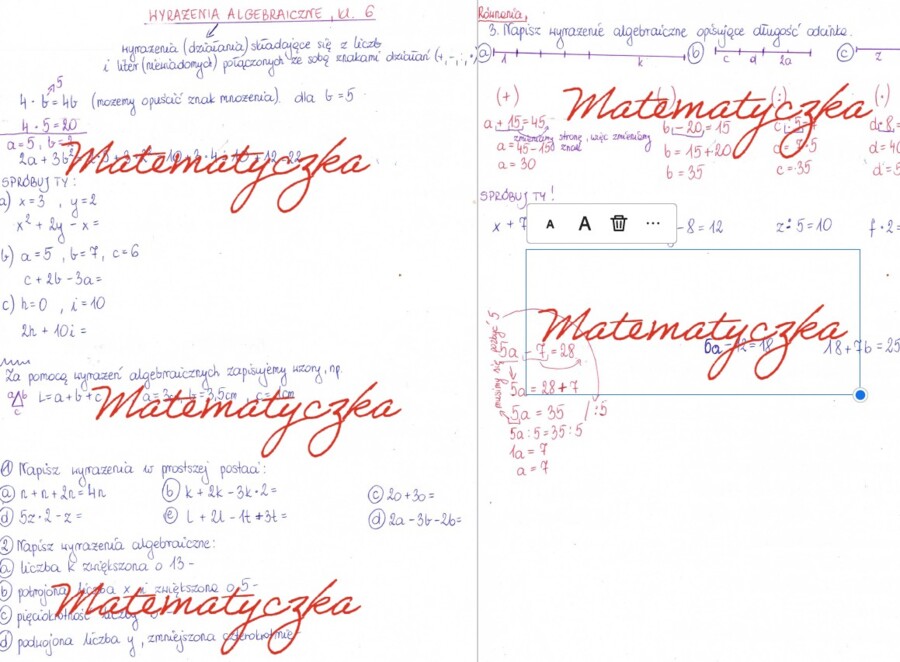 WYRAŻENIA ALGEBRAICZNE, kl. 6
wyrażenia (działania) składające się z liczb
i liter (niewiadomych) połączonych ze sobą znakami działań (+, -, :, ·)
5
4 · b = 4b (możemy opuścić znak mnożenia). dla b = 5
4 · 5 = 20
a = 5, b = 2
2a + 3b
Matematyczka
SPRÓBUJ TY:
a) x = 3 , y = 2
x² + 2y - x =
b) a = 5 , b = 7, c = 6
c + 2b - 3a =
c) h = 0 , i = 10
2h + 10i =
Za pomocą wyrażeń algebraicznych zapisujemy wzory, np.
a b L = a + b + c, b = 3,5cm
c
Matematyczka
① Napisz wyrażenia w prostszej postaci:
ⓐ n + n + 2n = 4n ⓑ k + 2k - 3k · 2 = ⓒ 20 + 30 =
ⓓ 5z · 2 - z = ⓔ l + 2l - 1t + 3t = ⓓ 2a - 3b - 2b =
② Napisz wyrażenia algebraiczne:
ⓐ liczba k zwiększona o 13 -
ⓑ potrojona liczba x i zwiększona o 5 -
Matematyczka
ⓒ pięciokrotność liczby
ⓓ podwojona liczba y, zmniejszona czterokrotnie
Równania,
3. Napisz wyrażenie algebraiczne opisujące długość odcinka.
ⓐ 1 k ⓑ c d 2a ⓒ z
(+) (:) (·)
Matematyczka
a + 15 = 45 b - 20 = 15
zmieniamy stronę, więc zmieniamy
znak
a = 45 - 15 b = 15 + 20
a = 30 b = 35 c = 35
SPRÓBUJ TY!
x + 7 - 8 = 12 z : 5 = 10 f · 2 =
A A ...
Matematyczka
musimy się pozbyć 5
5a - 7 = 28
18 + 7b = 25
5a = 28 + 7
5a = 35 / :5
5a : 5 = 35 : 5
1a = 7
a = 7